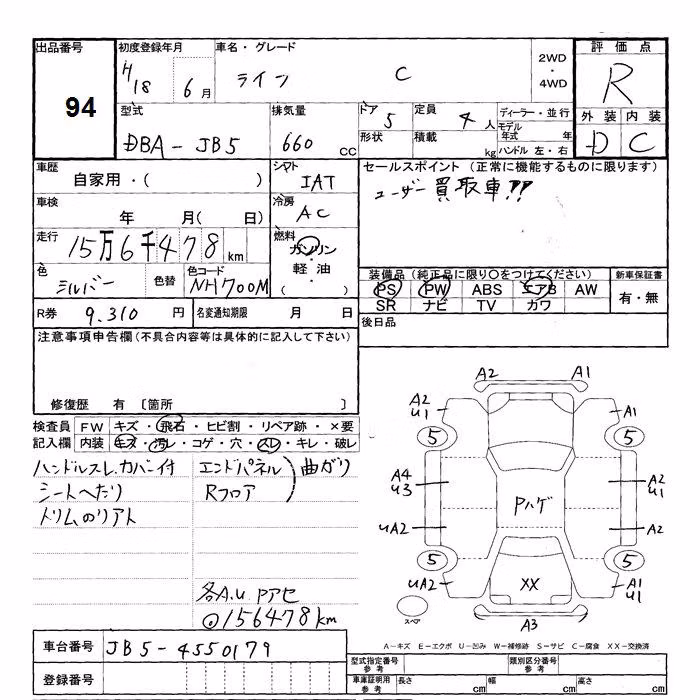 出品番号
94
初度登録年月
H18 6月
車名・グレード
ライフ C
2WD・4WD
評価点
R
外装 内装
D C
型式
DBA-JB5
排気量
660 CC
ドア 5
形状
定員 4人
積載 kg
ディーラー・並行
モデル年式 年
ハンドル 左・右
車歴
自家用・( )
シフト
IAT
セールスポイント (正常に機能するものに限ります)
ユーザー買取車!!
車検
年 月( 日)
冷房
AC
走行
15万6千478km
燃料
ガソリン・軽油・( )
色
シルバー
色替
色コード
NH700M
装備品(純正品に限り○をつけてください)
PS PW ABS エアB AW
SR ナビ TV カワ
新車保証書
有・無
R券 9.310 円
名変通知期限 月 日
後日品
注意事項申告欄(不具合内容等は具体的に記入して下さい)
修復歴 有 〔箇所 〕
検査員記入欄
FW キズ・飛石・ヒビ割・リペア跡・×要
内装 キズ・汚レ・コゲ・穴・スレ・キレ・破レ
ハンドルスレ.カバー付
シートへたり
トリムのリアト
エンドパネル
Rフロア
曲ガリ
各A.U Pアセ
156478km
A2 A1
A2 U1
A1
5 5
A4 U3
A2 U1
Pハゲ
UA2
A2
5 5
UA2
XX
A1 U1
スペア
A3
A-キズ E-エクボ U-凹み W-補修跡 S-サビ C-腐食 XX-交換済
車台番号
JB5-4550179
登録番号
型式指定番号 参考
類別区分番号 参考
車庫証明用 参考
長さ cm 幅 cm 高さ cm